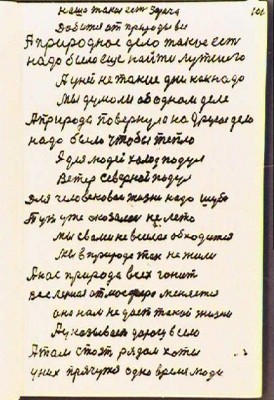 наша такая есть задача
Добится от природы все
А природное дело такое есть
надо было еще найти лутшего
А у ней не такие дни как надо
Мы думали об одном деле
А природа повернула на другое дело
надо было чтобы тепло
Я для людей холод подул
Ветер северной подул
Для человеческой жизни надо шуба
А тут уже оказалось не лето
мы с вами не в силах обходится
Мы в природе так не жили
А нас природа всех гонит
вселенная атмосфера меняется
она нам не дает такой жизни
А указывает дорогу в село
А там стоят рядом хаты
у них прячутся одно время люди